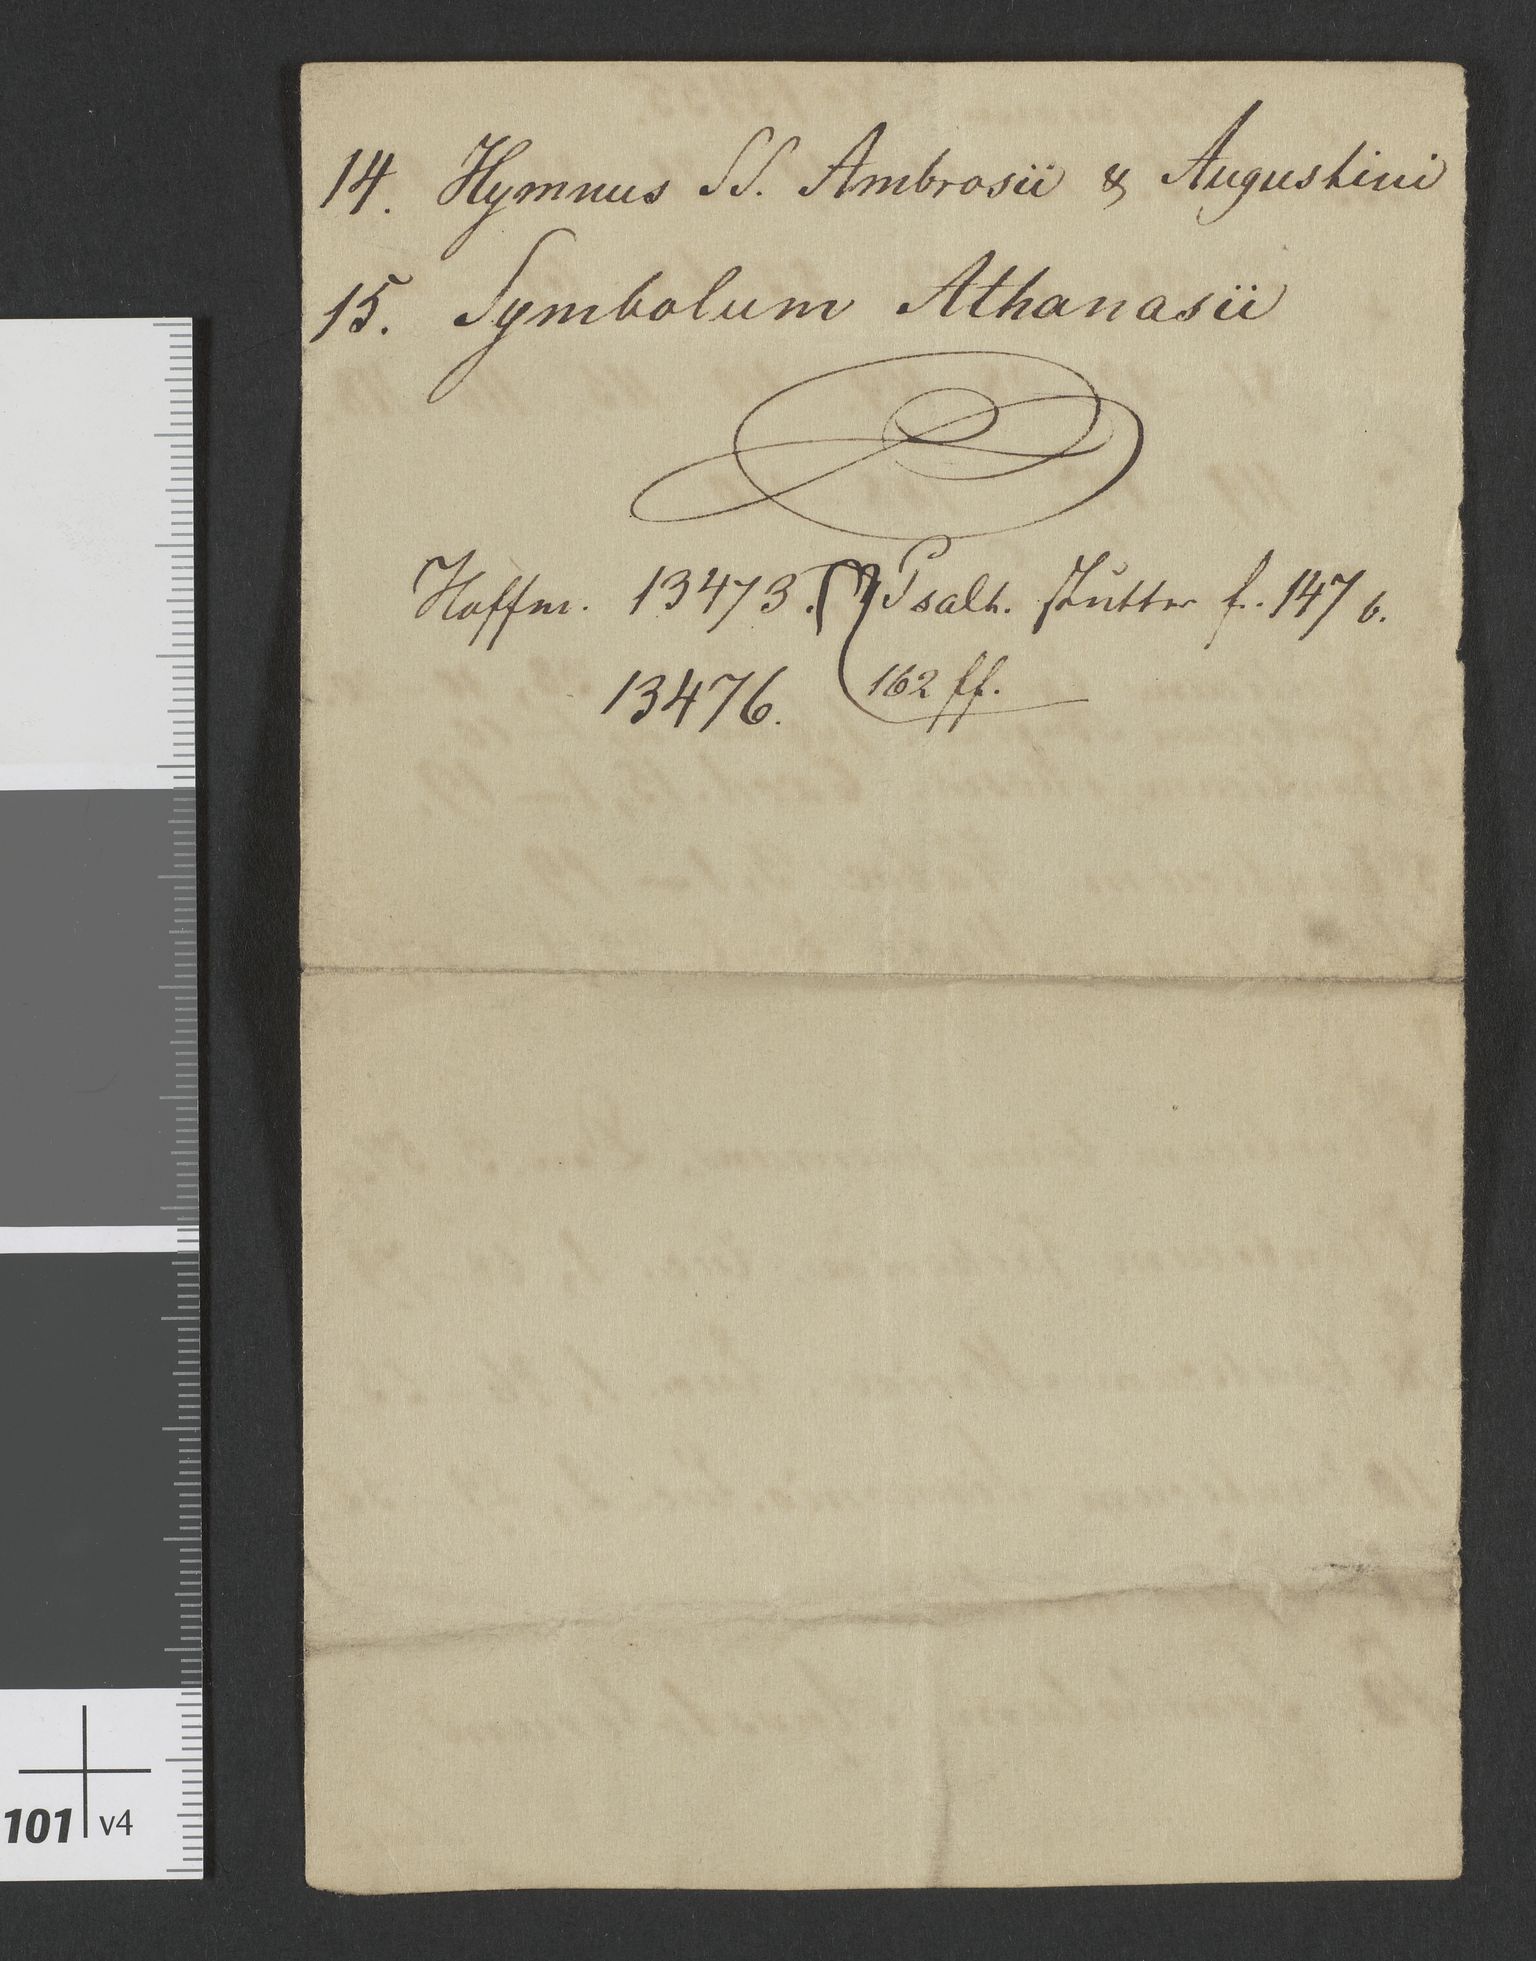 14. Hymnus SS. Ambrosii & Augustini
15. Symbolum Athanasii
Hoffm. 13473. Psalt. f. 147 b.
13476. 162 ff.
101 v4